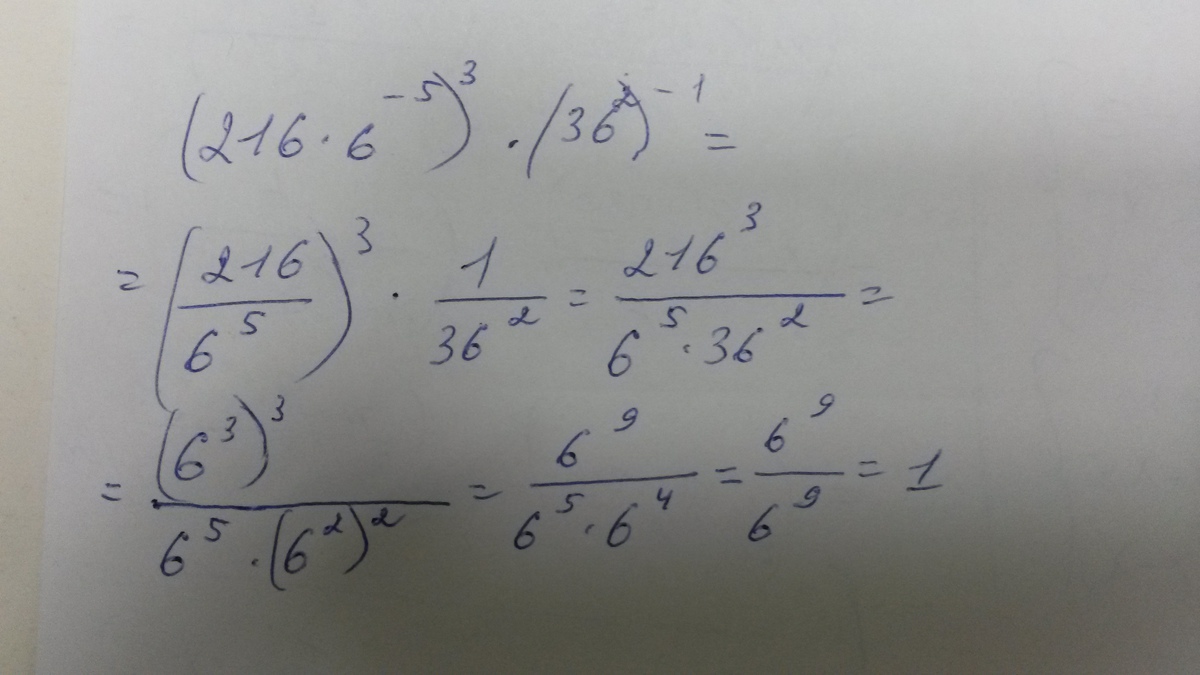 (216 · 6^{-5})^3 · (36^2)^{-1} =
= (\frac{216}{6^5})^3 · \frac{1}{36^2} = \frac{216^3}{6^5 · 36^2} =
= \frac{(6^3)^3}{6^5 · (6^2)^2} = \frac{6^9}{6^5 · 6^4} = \frac{6^9}{6^9} = 1